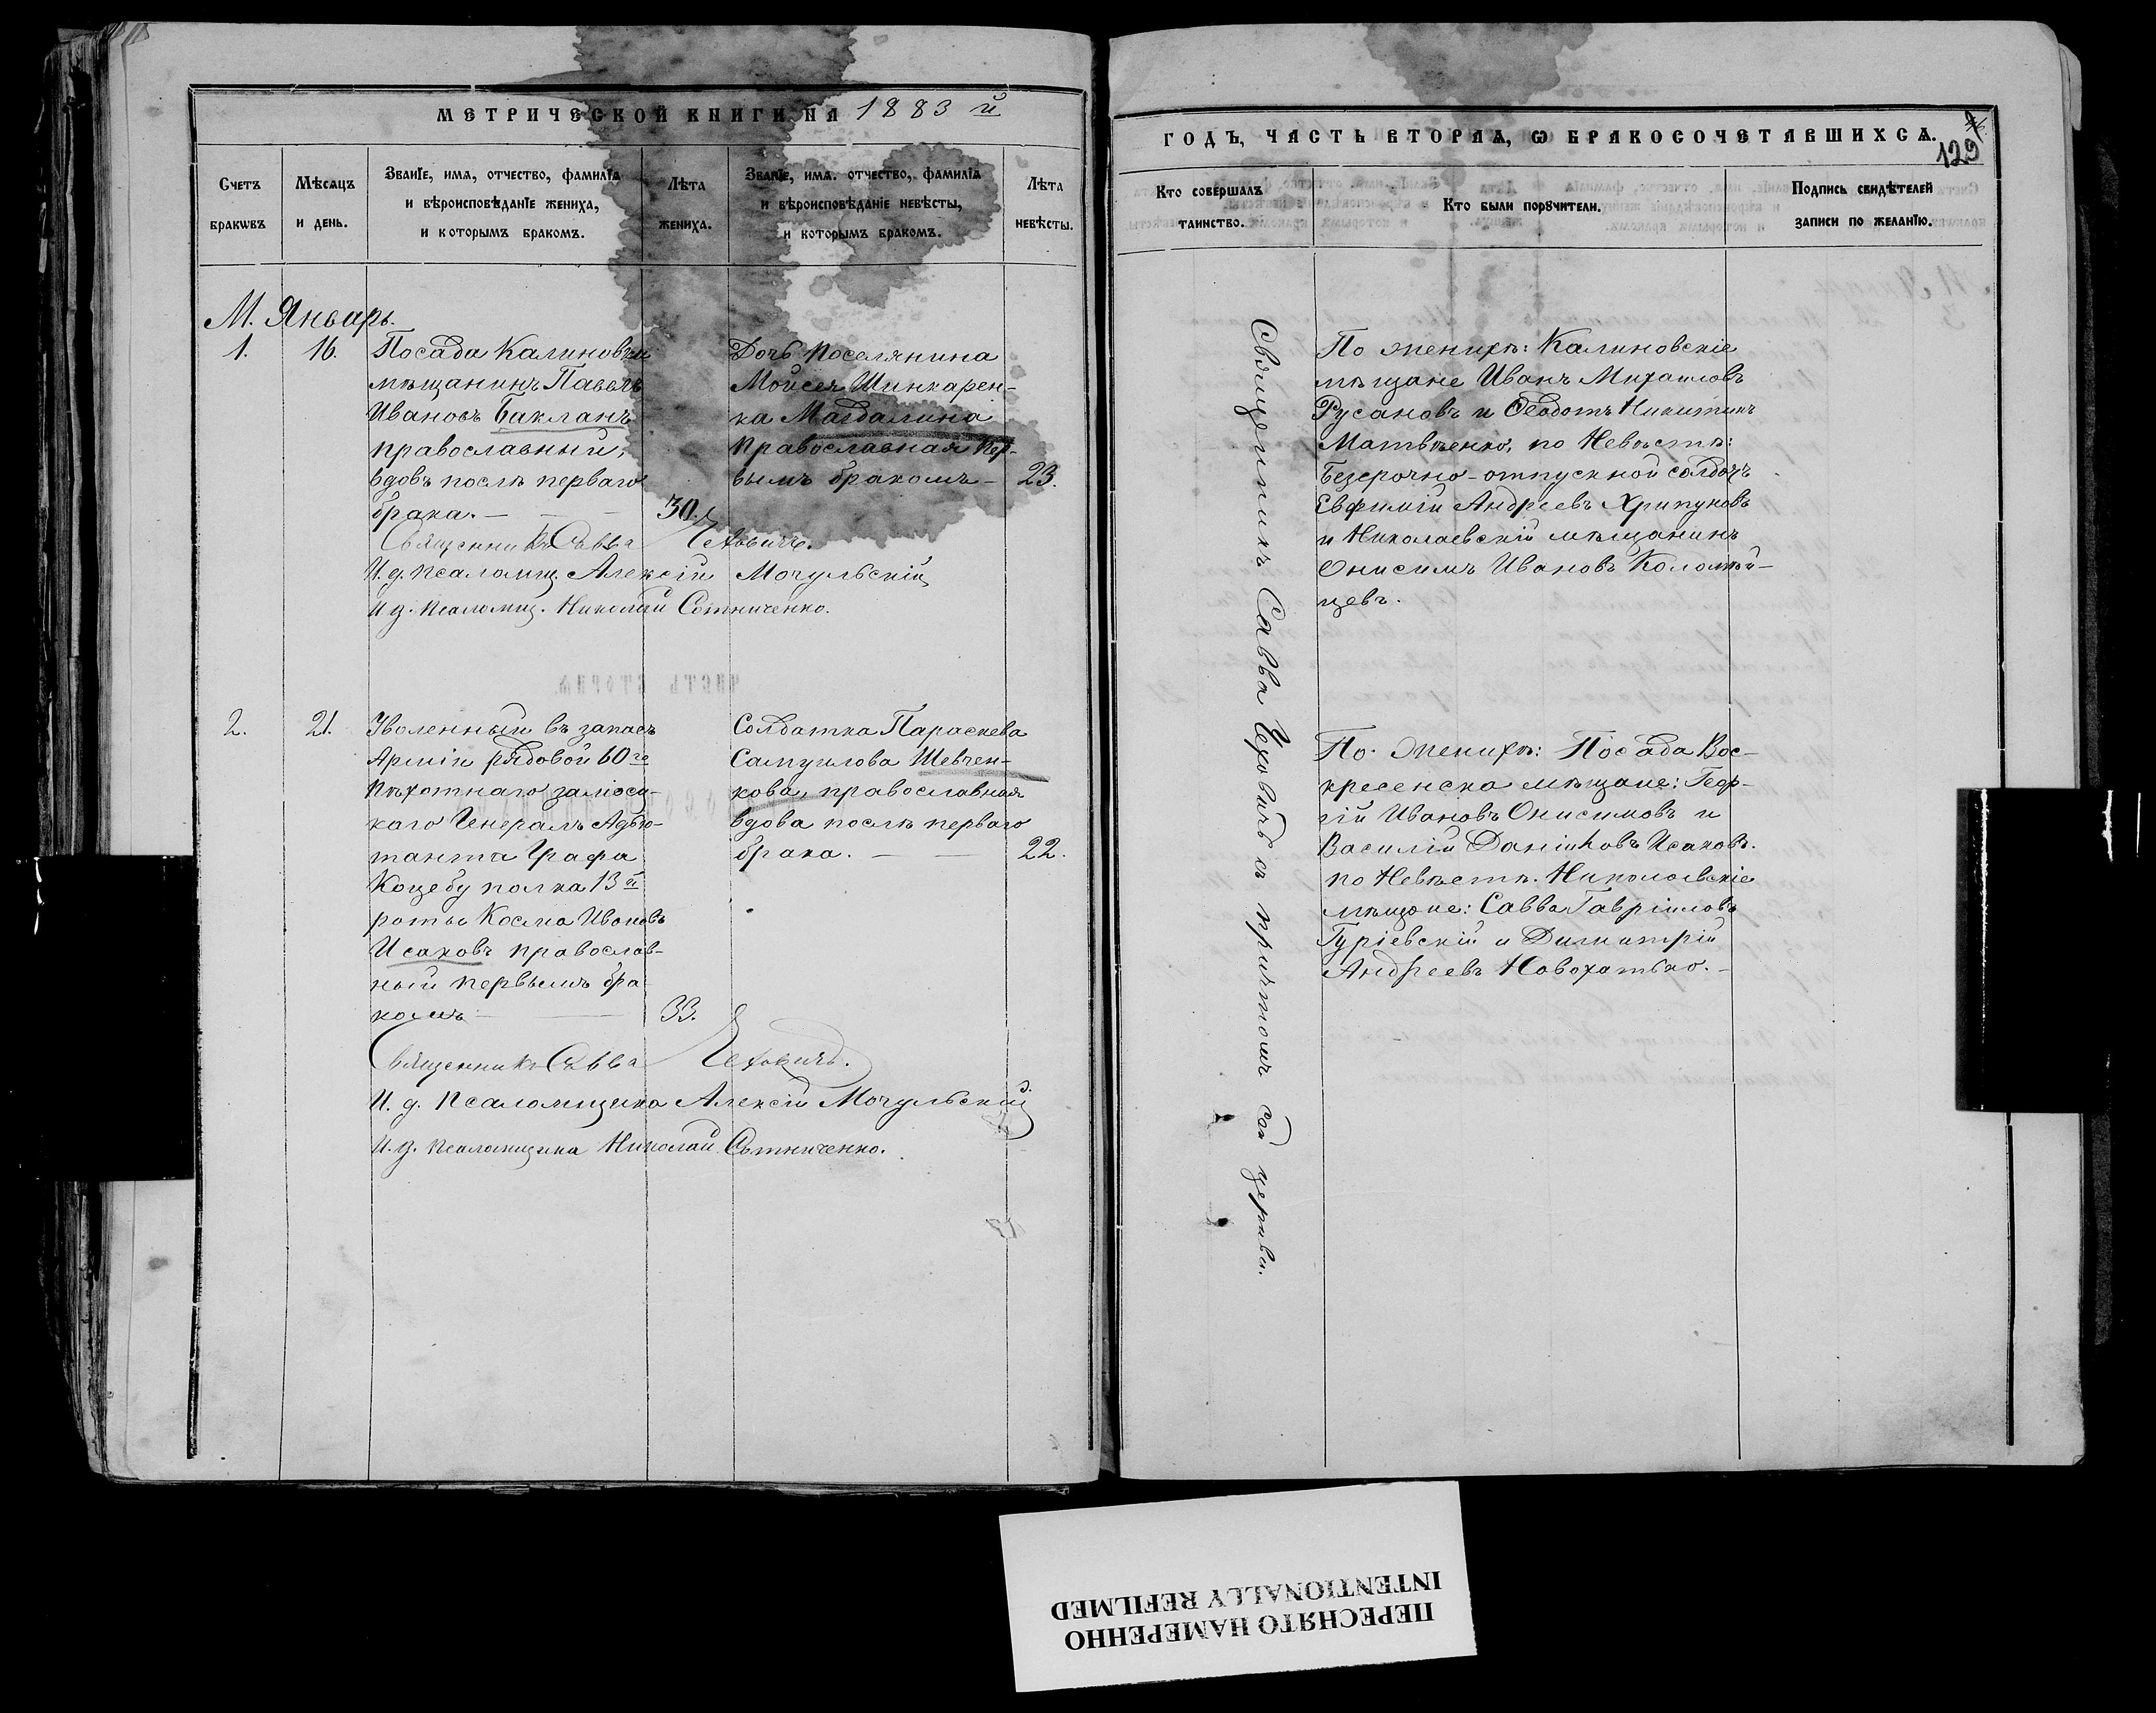 МЕТРИЧЕСКОЙ КНИГИ НА 1883 й
Счетъ браковъ
Мѣсяцъ и день.
Званіе, имя, отчество, фамилія
и вѣроисповѣданіе жениха,
и которымъ бракомъ.
Лѣта
жениха.
Званіе, имя. отчество, фамилія
и вѣроисповѣданіе невѣсты,
и которымъ бракомъ.
Лѣта
невѣсты.
М. Январь.
1.
16.
Посада Калиновки
мѣщанинъ Павелъ
Ивановъ Бакланъ
православный,
вдовъ послѣ перваго
брака. —
30.
Дочь поселянина
Мойсея Шинкарен-
ка Магдалина
православная пер-
вымъ бракомъ —
23.
Священникъ Савва Чеховичъ.
И. д. псаломщ. Алексій Мочульскій
И д. псаломщ. Николай Сотниченко.
2.
21.
Уволенный въ запасъ
Арміи рядовой 60го
пѣхотнаго замосц-
каго Генералъ Адъю-
танта Графа
Коцебу полка 13й
роты Косма Ивановъ
Исаковъ православ-
ный первымъ бра-
комъ —
33.
Солдатка Параскева
Самуилова Шевчен-
кова, православная
вдова послѣ перваго
брака. —
22.
Священникъ Савва Чеховичъ.
И. д. псаломщика Алексій Мочульскій
И. д. псаломщика Николай Сотниченко.
ГОДЪ, ЧАСТЬ ВТОРАЯ, Ѡ БРАКОСОЧЕТАВШИХСЯ.
129
Кто совершалъ
таинство.
Кто были поручители.
Подпись свидѣтелей
записи по желанію.
Священникъ Савва Чеховичъ съ причтомъ сей церкви.
По женихѣ: Калиновскіе
мѣщане Иванъ Михаиловъ
Русановъ и Ѳеодотъ Никитинъ
Матвѣенко, по Невѣстѣ:
Безсрочно-отпускной солдатъ
Евфимій Андреевъ Хрипуновъ
и Николаевскій мѣщанинъ
Онисимъ Ивановъ Коломій-
цевъ.
По женихѣ: Посада Вос-
кресенска мѣщане: Геор-
гій Ивановъ Онисимовъ и
Василій Даніиловъ Исаковъ.
по Невѣстѣ. Николаевскіе
мѣщане: Савва Гавріиловъ
Гуріевскій и Димитрій
Андреевъ Новохатько. —
ПЕРЕСНЯТО НАМЕРЕННО
INTENTIONALLY REFILMED